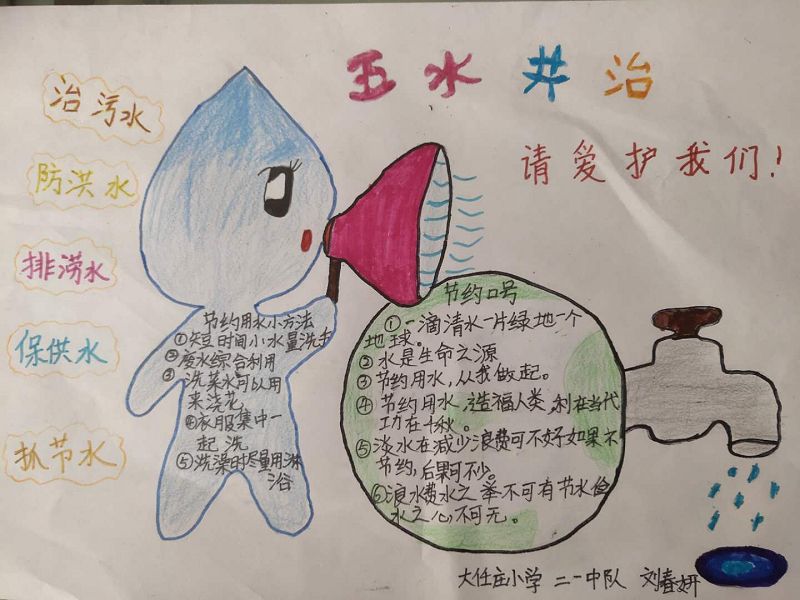 五水共治
请爱护我们!
治污水
防洪水
排涝水
保供水
抓节水
节约用水小方法
①短时间小水量洗手
②废水综合利用
③洗菜水可以用
来浇花
④衣服集中一
起洗
⑤洗澡时尽量用淋
浴
节约口号
①一滴清水一片绿地一个
地球。
②水是生命之源
③节约用水,从我做起。
④节约用水,造福人类,利在当代
功在千秋。
⑤淡水在减少浪费可不好如果不
节约,后果可不少。
⑥浪水费水之举不可有节水俭
水之心,不可无。
大任庄小学 二一中队 刘春妍